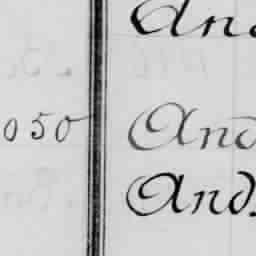 And
050 And
And